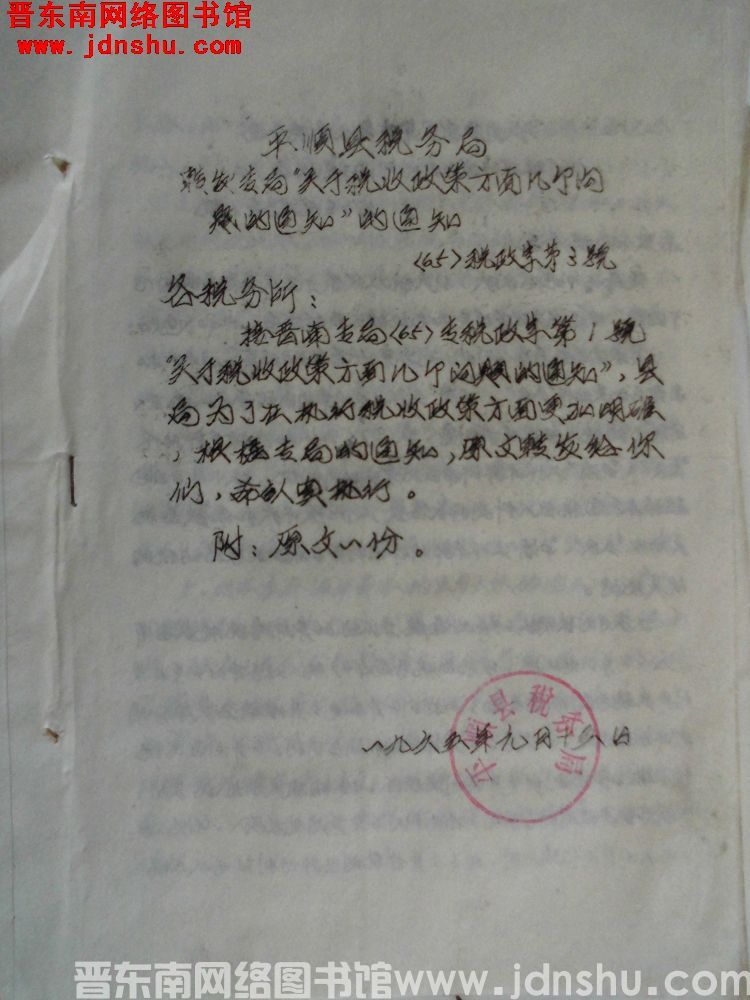 晋东南网络图书馆
www.jdnshu.com
平顺县税务局
转发专局“关于税收政策方面几个问
题的通知”的通知
〈65〉税政字第3號
各税务所：
接晋南专局〈65〉专税政字第1號
“关于税收政策方面几个问题的通知”，县
局为了在执行税收政策方面更加明确
，根据专局的通知，原文转发给你
们，希认真执行。
附：原文一份。
平顺县税务局
一九六五年九月十 日
晋东南网络图书馆www.jdnshu.com